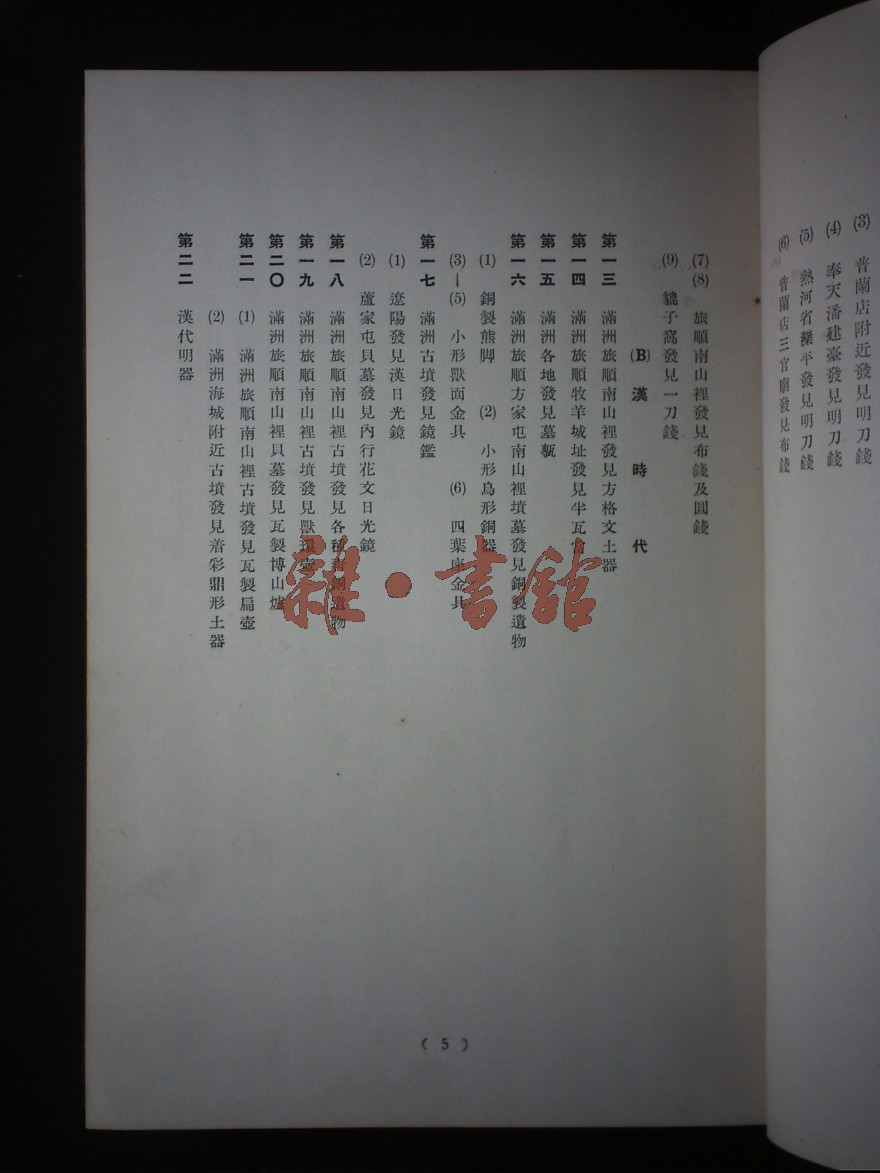 (3) 普蘭店附近發見明刀錢
(4) 奉天潘建臺發見明刀錢
(5) 熱河省灤平發見明刀錢
(6) 普蘭店三官廟發見布錢
(7)(8) 旅順南山裡發見布錢及圓錢
(9) 貔子窩發見一刀錢
(B) 漢時代
第一三 滿洲旅順南山裡發見方格文土器
第一四 滿洲旅順牧羊城址發見半瓦當
第一五 滿洲各地發見墓甎
第一六 滿洲旅順方家屯南山裡墳墓發見銅製遺物
(1) 銅製熊脚 (2) 小形鳥形銅器
(3)—(5) 小形獸面金具 (6) 四葉座金具
第一七 滿洲古墳發見鏡鑑
(1) 遼陽發見漢日光鏡
(2) 蘆家屯貝墓發見內行花文日光鏡
第一八 滿洲旅順南山裡古墳發見各種青銅遺物
第一九 滿洲旅順南山裡古墳發見獸環壺
第二〇 滿洲旅順南山裡貝墓發見瓦製博山爐
第二一 (1) 滿洲旅順南山裡古墳發見瓦製扁壺
(2) 滿洲海城附近古墳發見着彩鼎形土器
第二二 漢代明器
(5)
雜·書館